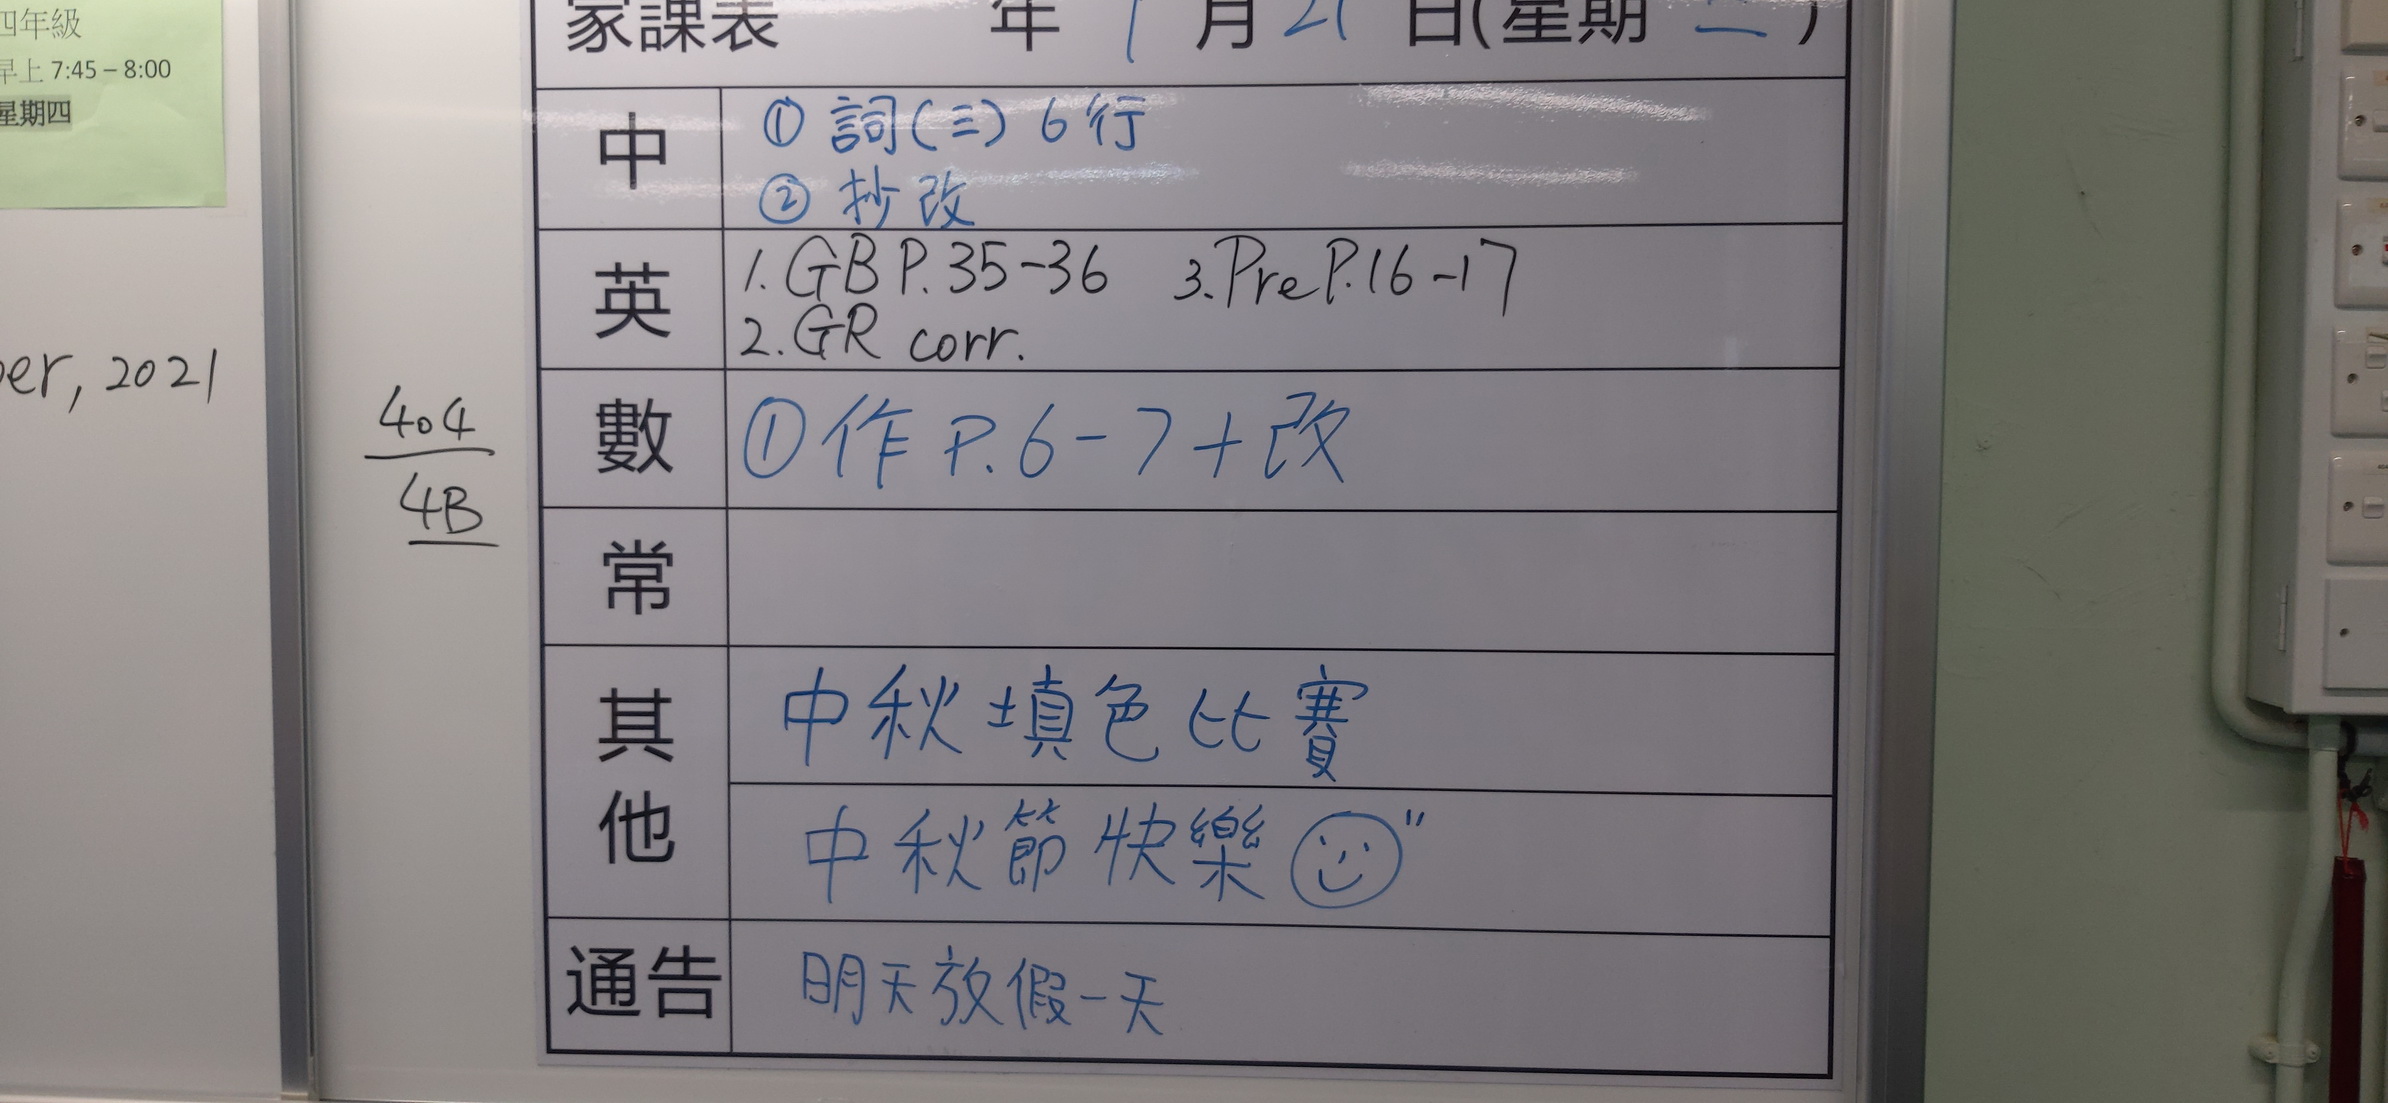 四年級
早上 7:45 – 8:00
星期四
er, 2021
404
4B
家課表 年 9 月 21 日(星期 二 )
中
① 詞(三) 6行
② 抄改
英
1. GB P. 35-36 3. Pre P. 16-17
2. GR corr.
數
① 作 P. 6-7+改
常
其他
中秋填色比賽
中秋節快樂
通告
明天放假一天